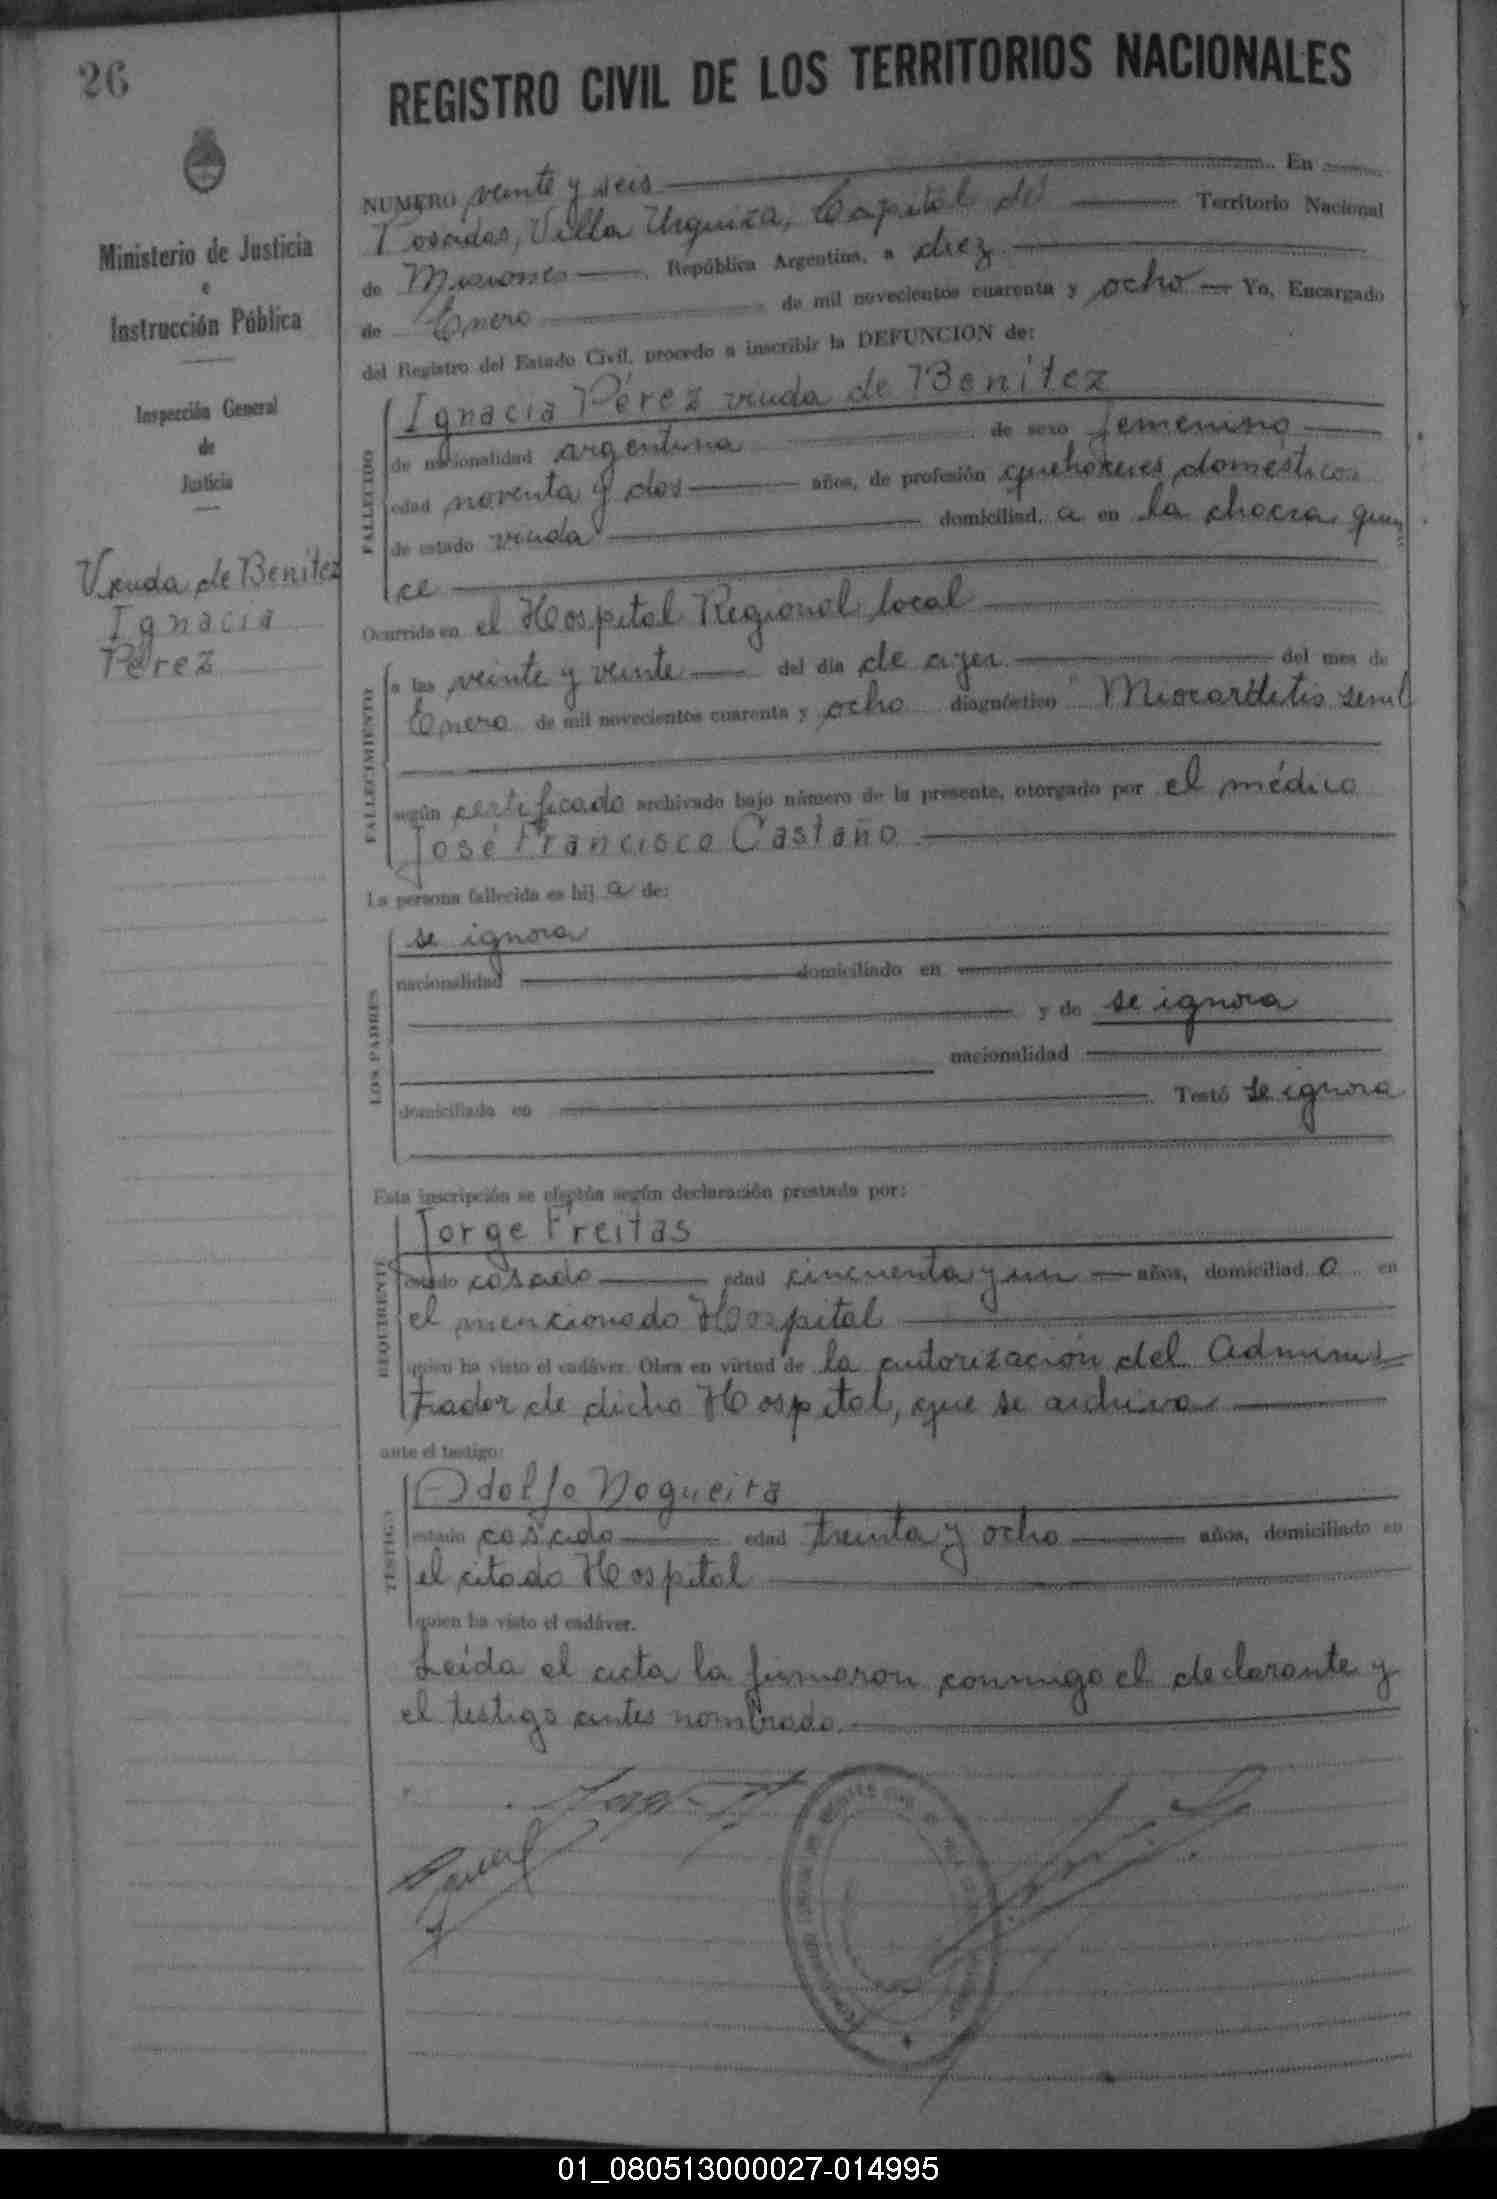 26
REGISTRO CIVIL DE LOS TERRITORIOS NACIONALES
Ministerio de Justicia
e
Instrucción Pública
Inspección General
de
Justicia
Viuda de Benitez
Ignacia
Pérez
NUMERO veinte y seis En
Posadas, Villa Urquiza, Capital del Territorio Nacional
de Misiones República Argentina, a diez
de Enero de mil novecientos cuarenta y ocho Yo, Encargado
del Registro del Estado Civil, procedo a inscribir la DEFUNCION de:
FALLECIDO
Ignacia Pérez viuda de Benítez
de nacionalidad argentina de sexo femenino
edad noventa y dos años, de profesión quehaceres domésticos
de estado viuda domiciliad a en la chacra quin
ce
Ocurrido en el Hospital Regional local
FALLECIMIENTO
a las veinte y veinte del día de ayer del mes de
Enero de mil novecientos cuarenta y ocho diagnóstico Miocarditis senil
según certificado archivado bajo número de la presente, otorgado por el médico
José Francisco Castaño
La persona fallecida es hij a de:
LOS PADRES
se ignora
nacionalidad domiciliado en
y de se ignora
nacionalidad
domiciliado en Testó se ignora
Esta inscripción se efectúa según declaración prestada por:
REQUIRENTE
Jorge Freitas
estado casado edad cincuenta y un años, domiciliad o en
el mencionado Hospital
quien ha visto el cadáver. Obra en virtud de la autorización del Adminis
trador de dicho Hospital, que se archiva
ante el testigo:
TESTIGO
Adolfo Nogueira
estado casado edad treinta y ocho años, domiciliado en
el citado Hospital
quien ha visto el cadáver.
Leída el acta la firmaron conmigo el declarante y
el testigo antes nombrado.
01_080513000027-014995